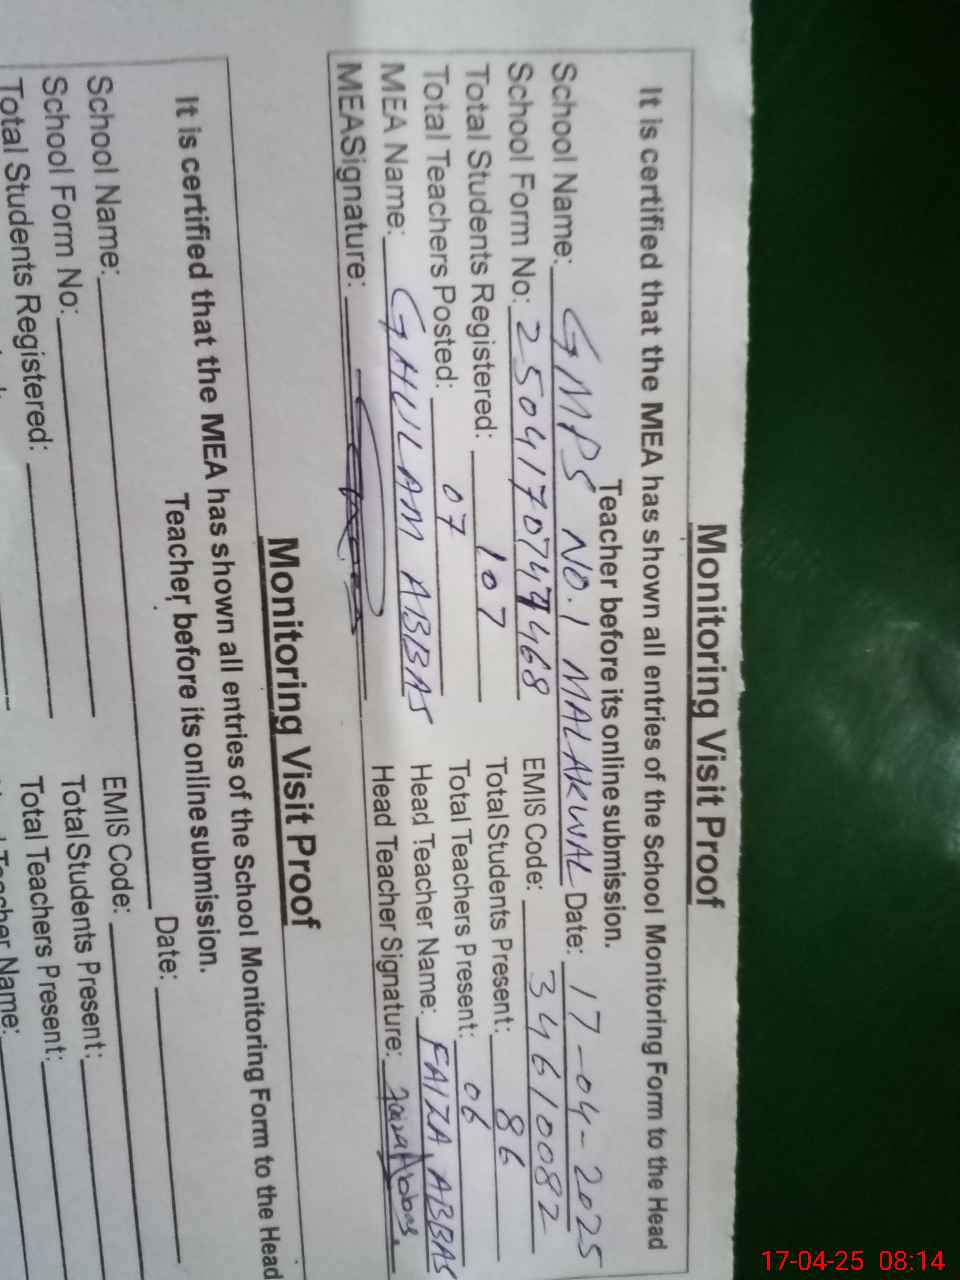 Monitoring Visit Proof
It is certified that the MEA has shown all entries of the School Monitoring Form to the Head
Teacher before its online submission.
School Name: GMPS NO.1 MALAKWAL Date: 17-04-2025
School Form No: 2504170747468 EMIS Code: 34610082
Total Students Registered: 107 Total Students Present: 86
Total Teachers Posted: 07 Total Teachers Present: 06
MEA Name: GHULAM ABBAS Head Teacher Name: FAIZA ABBAS
MEASignature: Head Teacher Signature: Faiza Abbas.
Monitoring Visit Proof
It is certified that the MEA has shown all entries of the School Monitoring Form to the Head
Teacher before its online submission.
School Name: Date:
School Form No: EMIS Code:
Total Students Registered: Total Students Present:
Total Teachers Present:
Name:
17-04-25 08:14